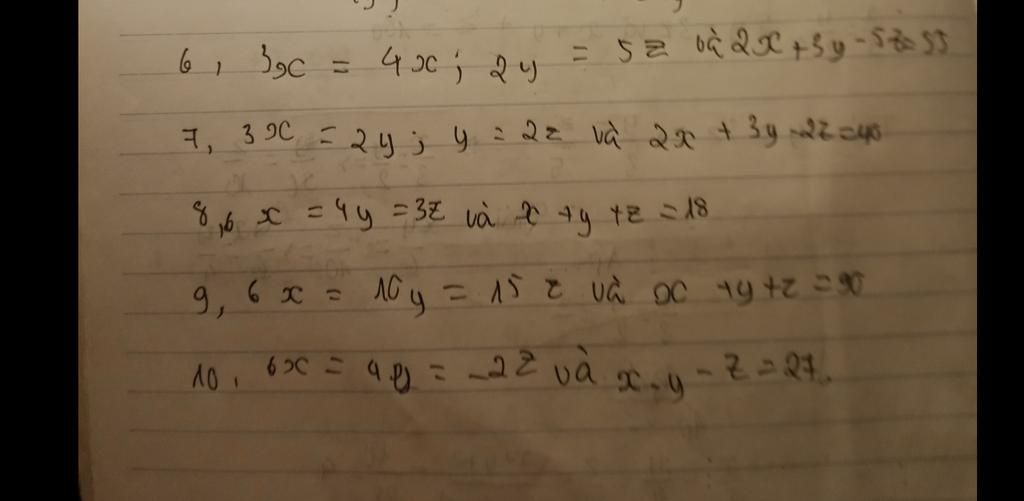 6, 3x = 4x; 2y = 5z và 2x + 3y - 5z = 55
7, 3x = 2y; y = 2z và 2x + 3y - 2z = 40
8, 6x = 4y = 3z và x + y + z = 18
9, 6x = 10y = 15z và x + y + z = 90
10, 6x = 4y = -2z và x - y - z = 27.